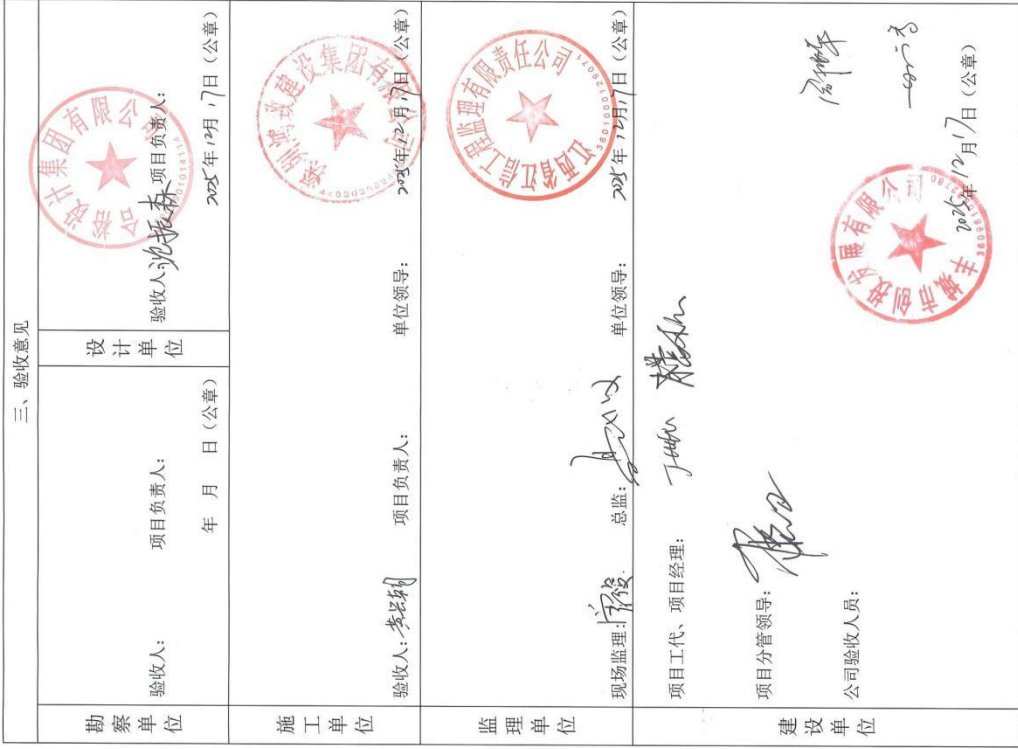 三、验收意见
勘察单位
验收人： 项目负责人：
年 月 日（公章）
设计单位
验收人：沈振森 项目负责人：
2025年12月17日（公章）
合裕设计集团有限公司
施工单位
验收人：黄长朝 项目负责人： 单位领导：
2025年12月17日（公章）
深圳鸿政建设集团有限公司
监理单位
现场监理： 总监： 单位领导：
2025年12月17日（公章）
江西省江信工程监理有限责任公司
3601000129071
建设单位
项目工代、项目经理：
项目分管领导：
公司验收人员：
2025年12月17日（公章）
丰城市创投发展有限公司